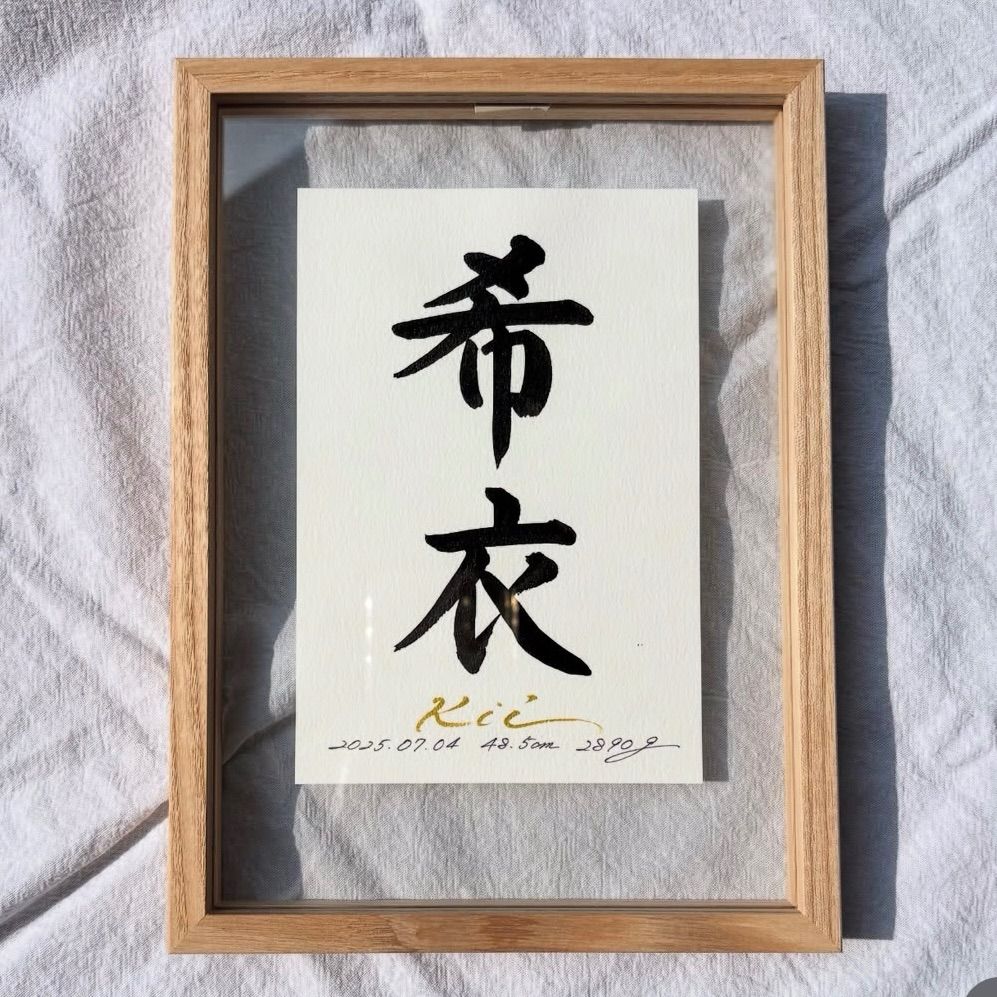 希衣
Kii
2025.07.04 48.5cm 2890g